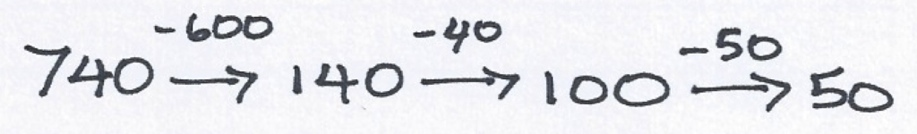 740 -600→ 140 -40→ 100 -50→ 50